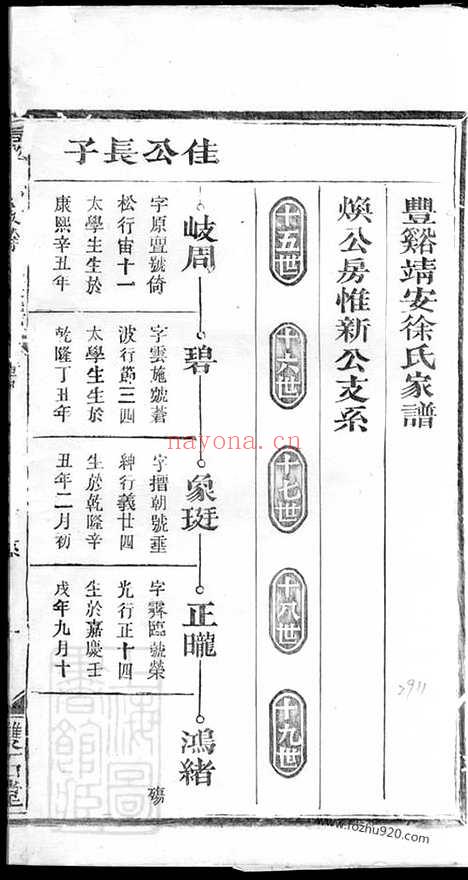 豐谿靖安徐氏家譜
煥公房惟新公支系
十五世
十六世
十七世
十八世
十九世
佳公長子
岐周
字原亶號倚
松行宙十一
太學生生於
康熙辛丑年
碧
字雲施號蒼
波行節三四
太學生生於
乾隆丁丑年
象珽
字搢朝號垂
紳行義廿四
生於乾隆辛
丑年二月初
正曨
字霽臨號榮
光行正十四
生於嘉慶壬
戌年九月十
鴻緒
殤
2911
nayona.cn
www.fozhu920.com